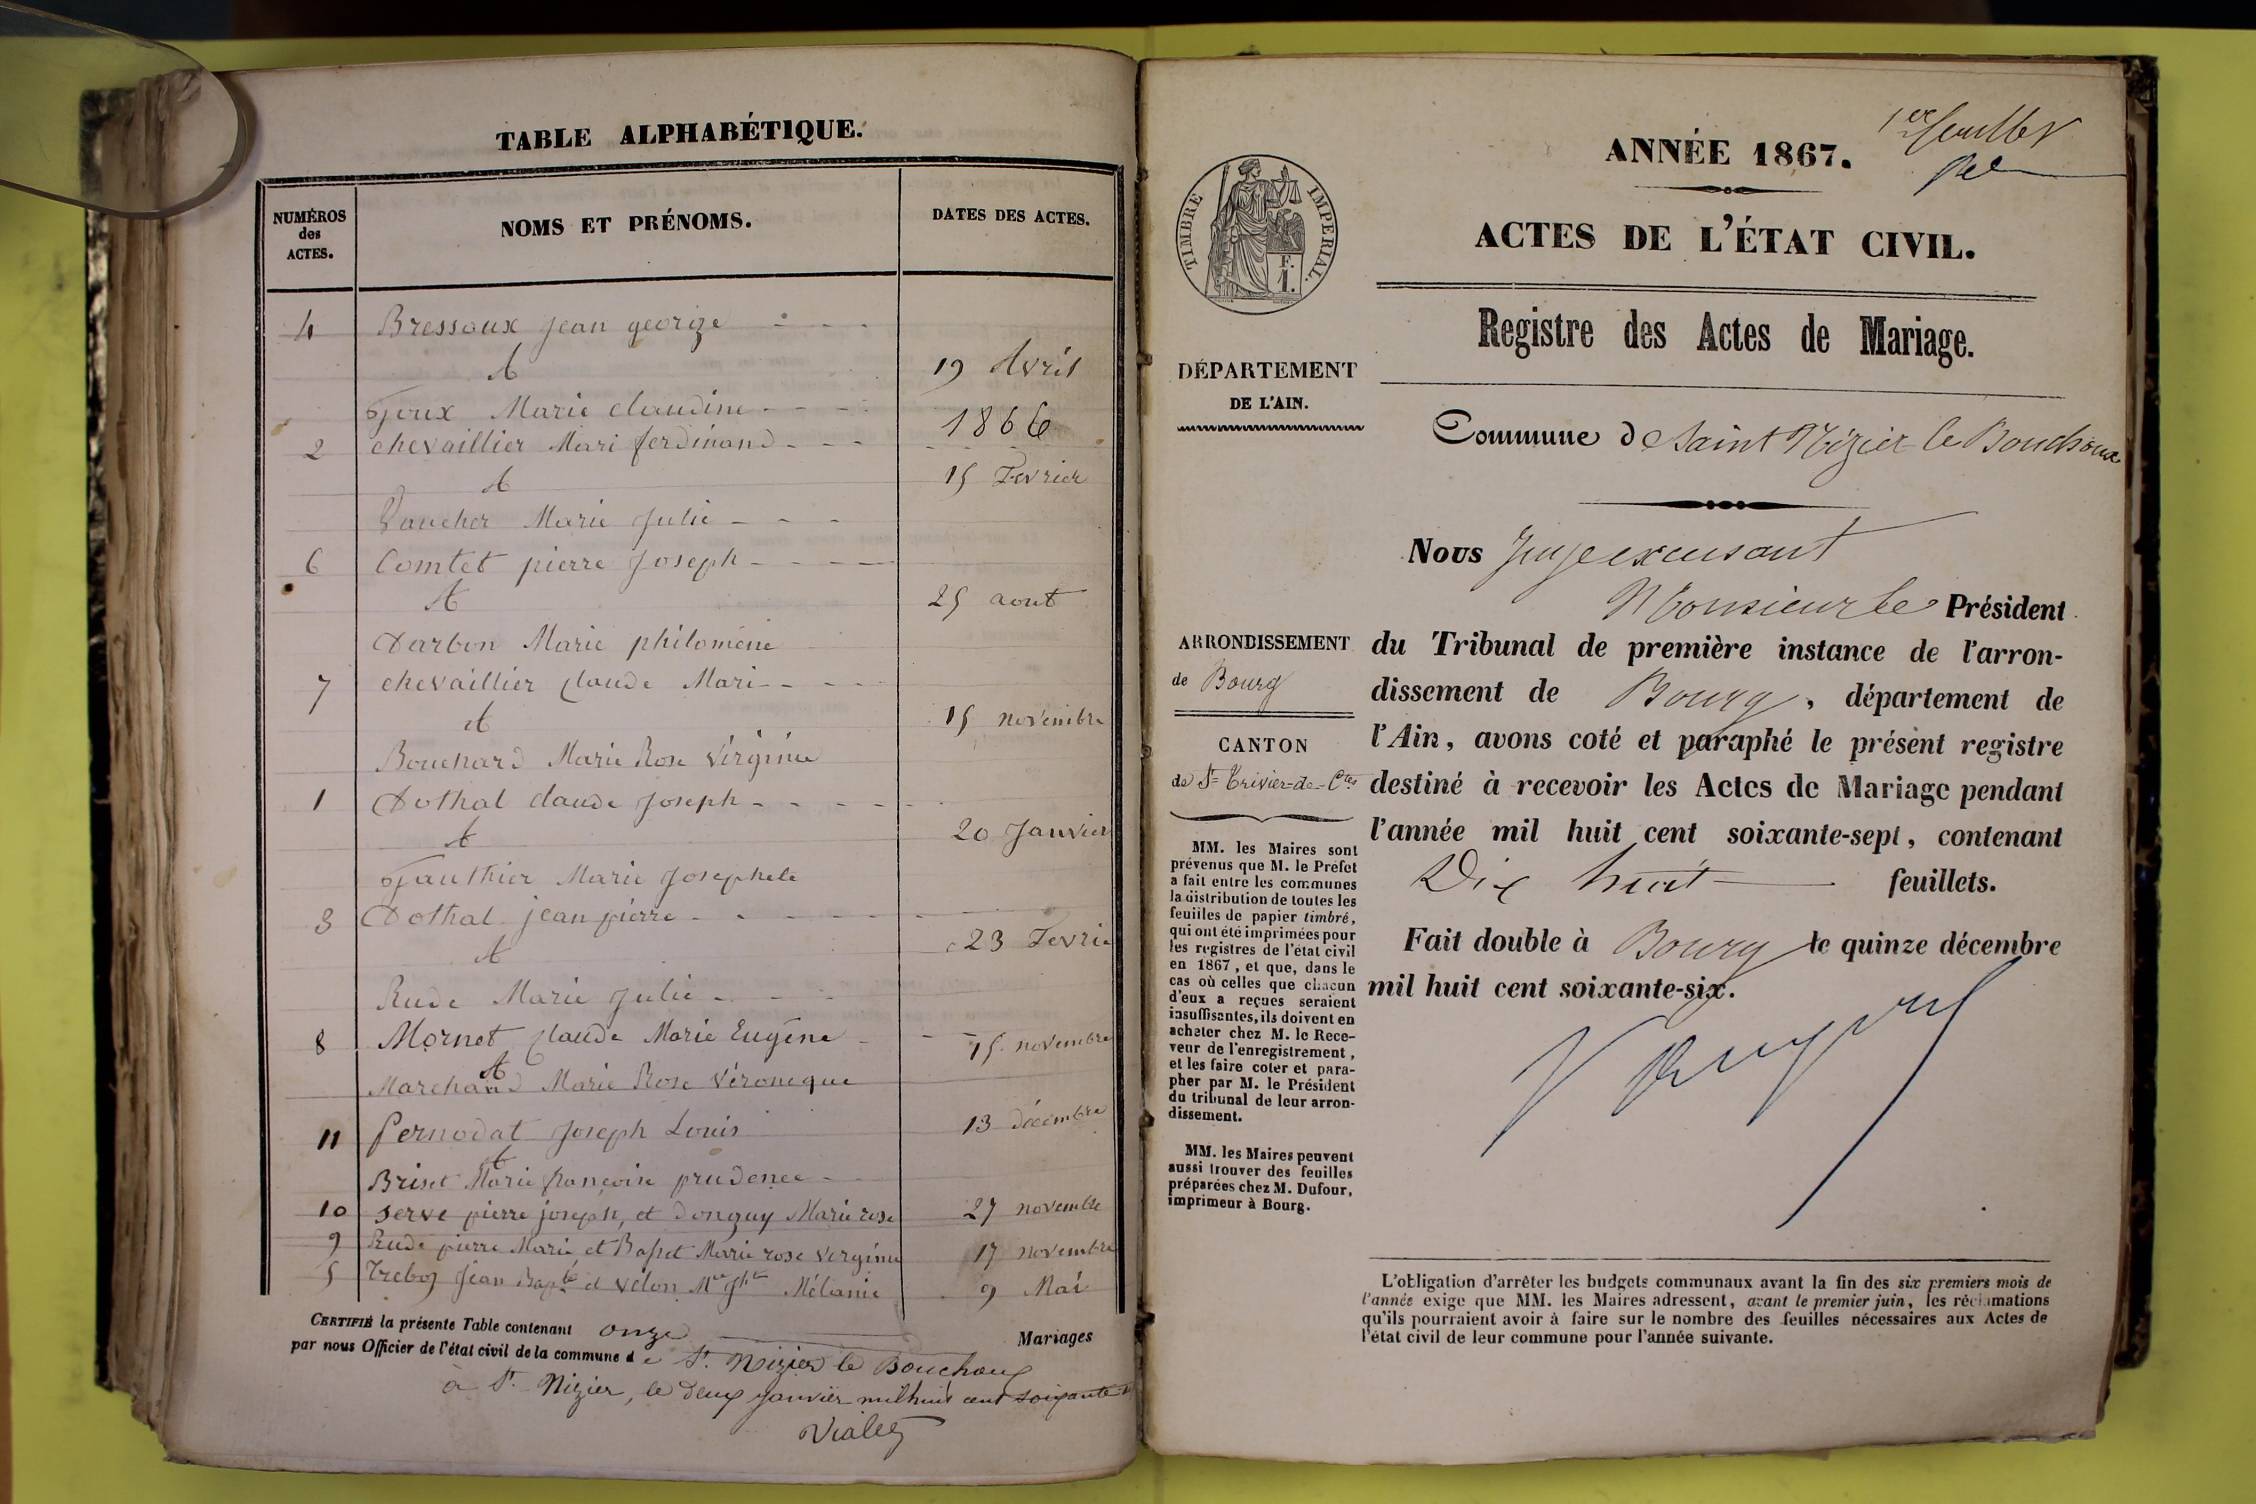 TABLE ALPHABÉTIQUE.
NUMÉROS
des
ACTES.
NOMS ET PRÉNOMS.
DATES DES ACTES.
4 Bressoux Jean george
et 19 Avril
Joux Marie claudine 1866
2 chevaillier Mari ferdinand
et 15 Fevrier
Vaucher Marie Julie
6 Comtet pierre Joseph
et 25 aout
Darbon Marie philomène
7 chevaillier claude Mari
et 15 novembre
Bouchard Marie Rose Virginie
1 Dothal claude Joseph
et 20 Janvier
Gauthier Marie Josephete
3 Dothal jean pierre
et 23 Fevrie
Rude Marie Julie
8 Mornet claude Marie Eugène 15 novembre
et
Marchand Marie Rose Véroneque
11 Pernodat Joseph Louis 13 décembre
et
Briset Marie françoise prudence
10 Serve pierre joseph, et donguy Marie rose 27 novembre
9 Rude pierre Marie et Basset Marie rose Vergine 17 novembre
5 Jean Bapte et Vélon Mélanie 9 Mai
CERTIFIÉ la présente Table contenant onze Mariages
par nous Officier de l'état civil de la commune de St. Nizier le Bouchoux
à St. Nizier, le deux janvier mil huit cent soixante
Vialey
1er feuillet
ANNÉE 1867.
ACTES DE L'ÉTAT CIVIL.
TIMBRE IMPERIAL.
F.
1.
Registre des Actes de Mariage.
DÉPARTEMENT
DE L'AIN.
Commune de Saint Nizier le Bouchoux
Nous Juge excusant
Monsieur le Président
du Tribunal de première instance de l'arron-
dissement de Bourg, département de
l'Ain, avons coté et paraphé le présent registre
destiné à recevoir les Actes de Mariage pendant
l'année mil huit cent soixante-sept, contenant
Dix huit feuillets.
Fait double à Bourg le quinze décembre
mil huit cent soixante-six.
ARRONDISSEMENT
de Bourg
CANTON
de St-Trivier-de-Ctes
MM. les Maires sont
prévenus que M. le Préfet
a fait entre les communes
la distribution de toutes les
feuilles de papier timbré,
qui ont été imprimées pour
les registres de l'état civil
en 1867, et que, dans le
cas où celles que chacun
d'eux a reçues seraient
insuffisantes, ils doivent en
acheter chez M. le Rece-
veur de l'enregistrement,
et les faire coter et para-
pher par M. le Président
du tribunal de leur arron-
dissement.
MM. les Maires peuvent
aussi trouver des feuilles
préparées chez M. Dufour,
imprimeur à Bourg.
L'obligation d'arrêter les budgets communaux avant la fin des six premiers mois de
l'année exige que MM. les Maires adressent, avant le premier juin, les réclamations
qu'ils pourraient avoir à faire sur le nombre des feuilles nécessaires aux Actes de
l'état civil de leur commune pour l'année suivante.